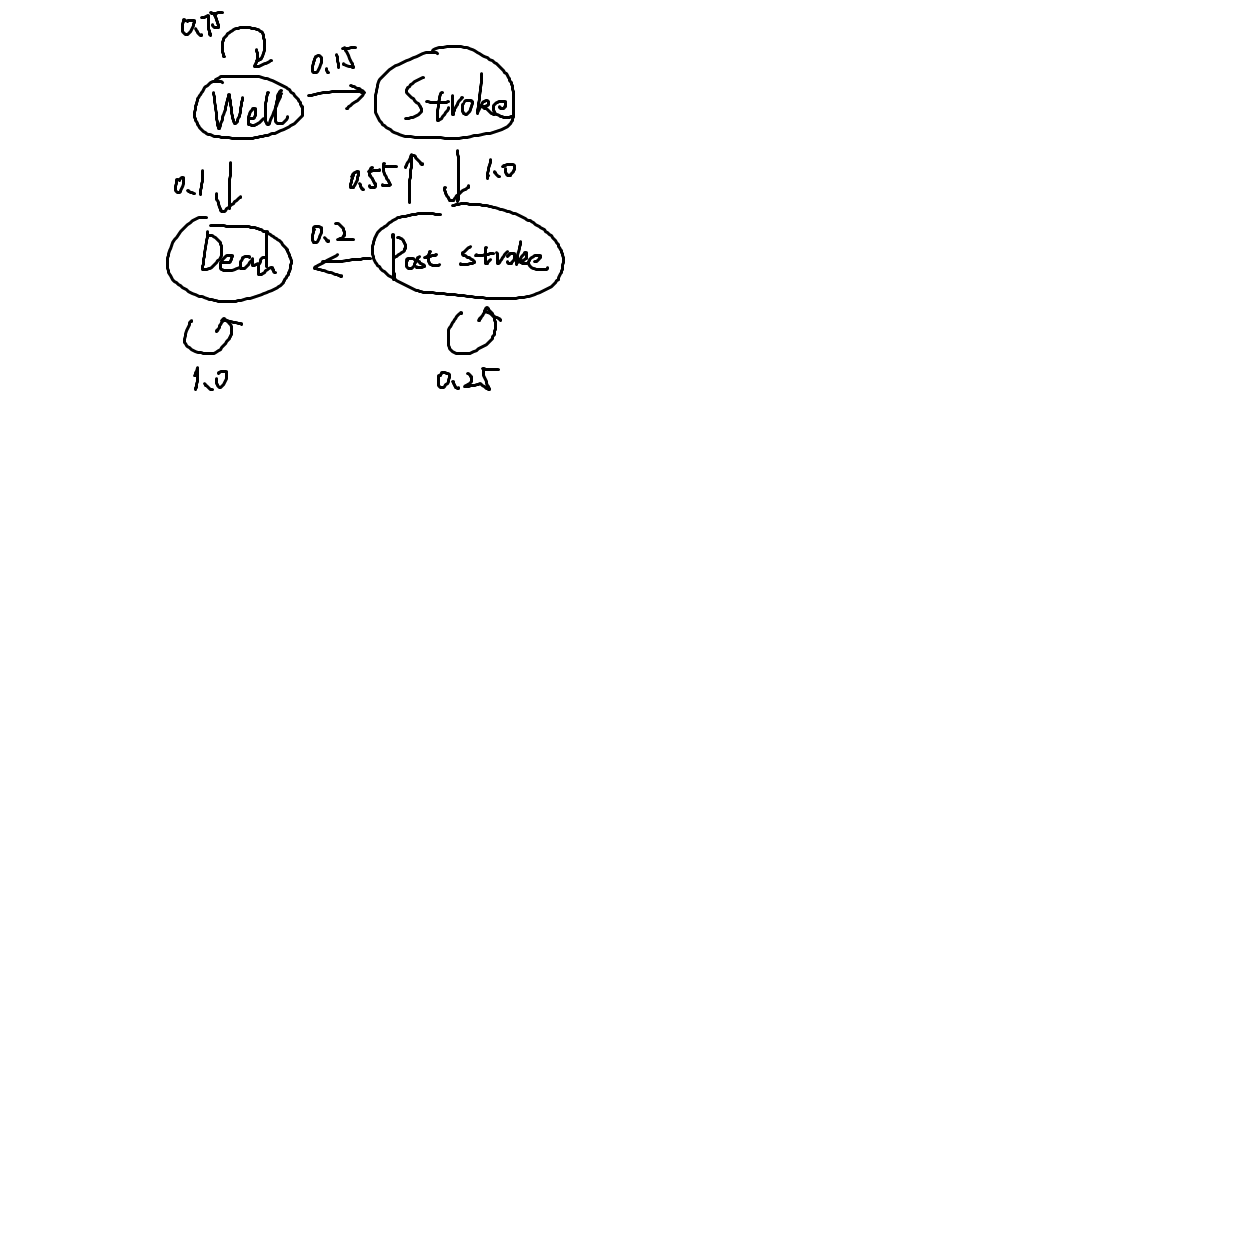 0.75
0.15
Well
Stroke
0.1
0.55
1.0
Dead
0.2
Post stroke
1.0
0.25